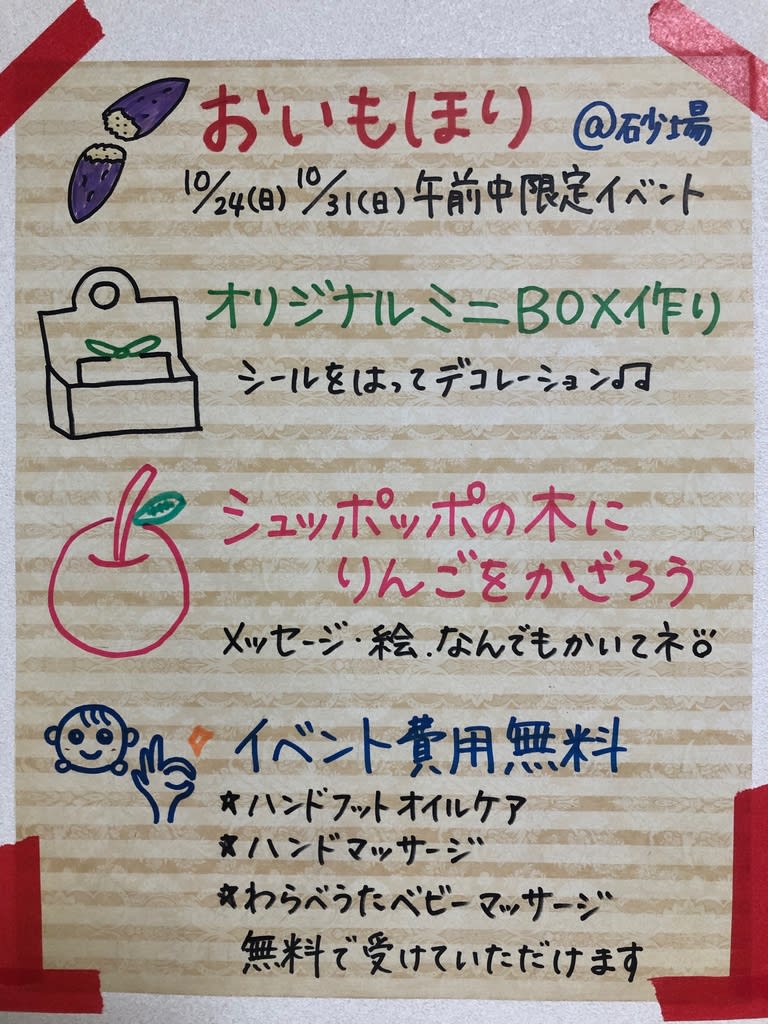 おいもほり @砂場
10/24(日) 10/31(日)午前中限定イベント
オリジナルミニBOX作り
シールをはってデコレーション♫
シュッポッポの木に
りんごをかざろう
メッセージ・絵.なんでもかいてネ
イベント費用無料
☆ハンドフットオイルケア
☆ハンドマッサージ
☆わらべうたベビーマッサージ
無料で受けていただけます